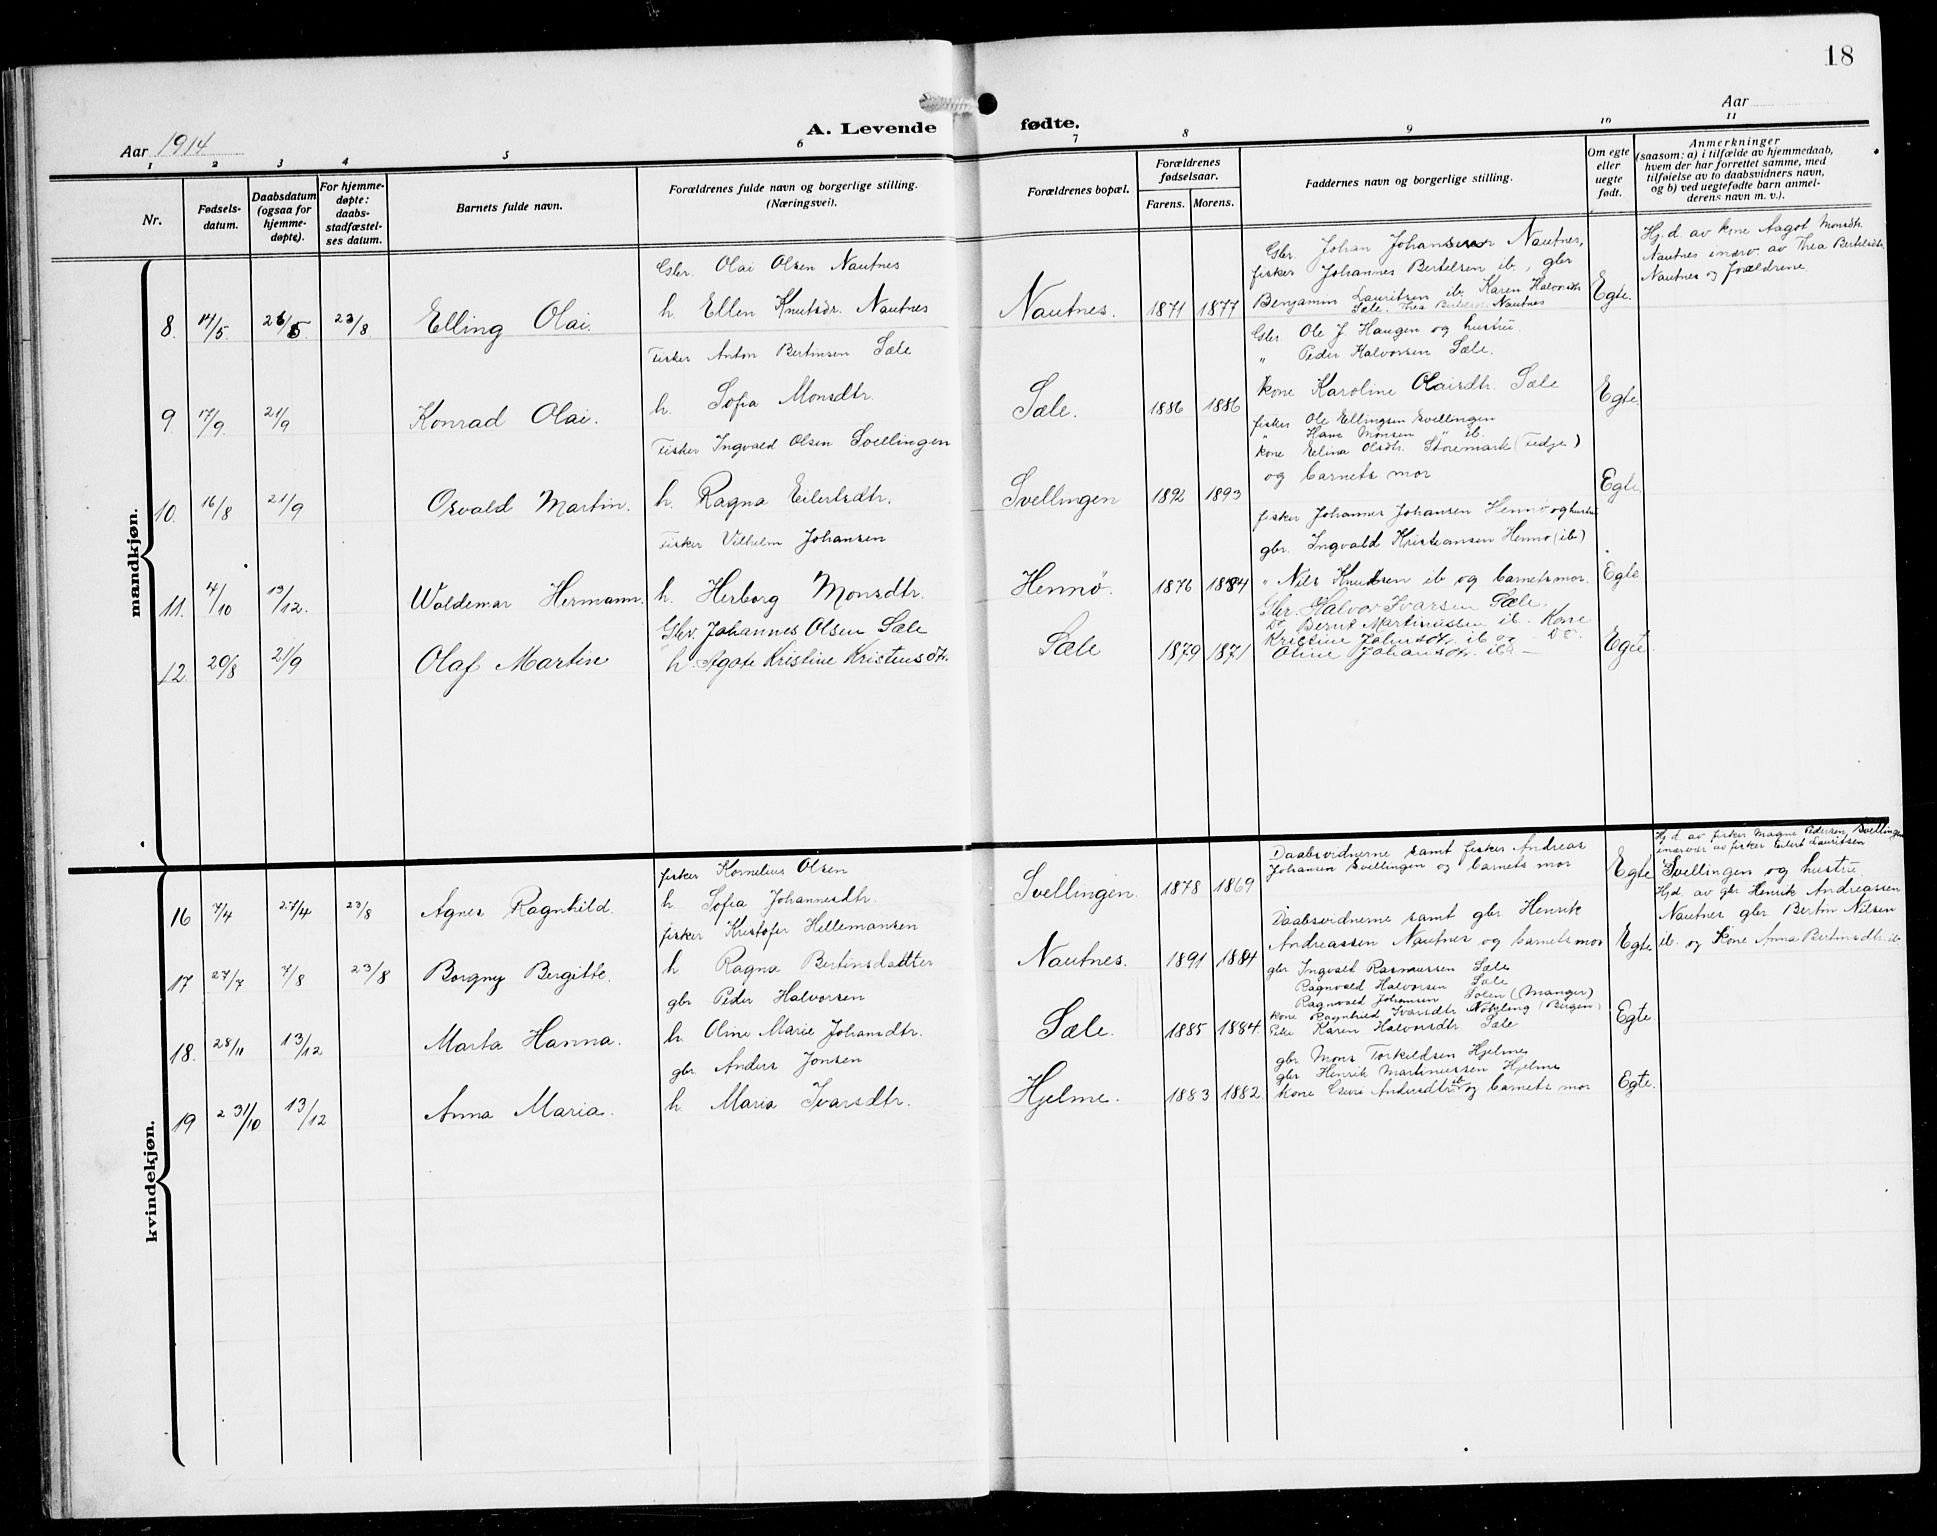 18
Aar 1914
A. Levende fødte.
Aar
1 2 3 4 5 6 7 8 9 10 11
Nr.
Fødsels-
datum.
Daabsdatum
(ogsaa for
hjemme-
døpte).
For hjemme-
døpte:
daabs-
stadfæstel-
ses datum.
Barnets fulde navn.
Forældrenes fulde navn og borgerlige stilling.
(Næringsvei).
Forældrenes bopæl.
Forældrenes
fødselsaar.
Farens. Morens.
Faddernes navn og borgerlige stilling.
Om egte
eller
uegte
født.
Anmerkninger
(saasom: a) i tilfælde av hjemmedaab,
hvem der har forrettet samme, med
tilføielse av to daabsvidners navn,
og b) ved uegtefødte barn anmel-
derens navn m. v.).
mandkjøn.
8. 14/5. 26/5 23/8 Elling Olai.
Gbr. Olai Olsen Nautnes
h. Ellen Knutsdr. Nautnes
Nautnes. 1871 1877
Gbr. Johan Johansen Nautnes,
fisker Johannes Bertelsen ib., gbr
Benjamin Lauritsen ib. Karen Halvorsdtr
Sæle. Thea Nautnes
Egte.
Hj. d. av kone Aagot Monsdtr
Nautnes inærv. av Thea Bertelsdtr
Nautnes og forældrene.
9 17/9. 21/9 Konrad Olai.
Fisker Anton Bertinsen Sæle
h. Sofia Monsdtr.
Sæle. 1886 1886
Gbr. Ole J. Haugen og hustru.
" Peder Halvorsen Sæle.
Kone Karoline Olaisdtr. Sæle
Egte.
10. 16/8 21/9 Osvald Martin.
Fisker Ingvald Olsen Svellingen
h. Ragna Eilertsdtr.
Svellingen 1892 1893
fisker Ole Ellingsen Svellingen
" Hans Monsen ib.
kone Elina Olsdtr. Storemark (Fedje)
og barnets mor
Egte.
11. 4/10 13/12. Waldemar Hermann.
Fisker Vilhelm Johansen
h. Herborg Monsdtr.
Hennø. 1876 1884
fisker Johannes Johansen Hennø og hustru
gbr. Ingvald Kristiansen Hennø (ib)
" Nils Knudsen ib og barnets mor.
Egte
12. 20/8 21/9 Olaf Martin
Gbr. Johannes Olsen Sæle
h. Agate Kristine Kristensdtr.
Sæle 1879 1871
Gbr. Halvor Ivarsen Sæle.
Do Bernt Martinussen ib. Kone
Kristine Johnsdtr. ib og Do.
Oline Johansdtr. ib. —
Egte.
kvindekjøn.
16 7/4 27/4 23/8 Agnes Ragnhild.
fisker Kornelius Olsen
h. Sofia Johannesdtr.
Svellingen. 1878 1869
Daabsvidnerne samt fisker Andreas
Johansen Svellingen og barnets mor
Egte
Hj. d. av fisker Magne Pedersen Svellingen
inærvær av fisker Eilert Lauritsen
Svellingen og hustru.
17 27/7 7/8 23/8 Borgny Bergitte.
fisker Kristofer Hillemansen
h Ragna Bertinsdatter
Nautnes. 1891 1884
Daabsvidnerne samt gbr Henrik
Andreassen Nautnes og barnets mor
Egte
Hjd. av gbr Henrik Andreassen
Nautnes gbr Bertin Nilsen
ib. og kone Anna Bertinsdtr. ib.
18. 28/11 13/12 Marta Hanna.
gbr Peder Halvorsen
h. Oline Marie Johansdtr.
Sæle. 1885 1884
gbr Ingvald Rasmussen Sæle
Ragnvald Halvorsen Sæle
Ragnvald Johansen Tolen (Manger)
kone Ragnhild Ivarsdtr Nøkling (Bergen)
Pike Karen Halvorsdtr Sæle
Egte
19 2 31/10 13/12 Anna Maria.
gbr Anders Jonsen
h. Maria Ivarsdtr.
Hjelme. 1883 1882
gbr. Mons Torkildsen Hjelme
gbr Henrik Martinussen Hjelme
kone Andersdtr ib og barnets mor
Egte.